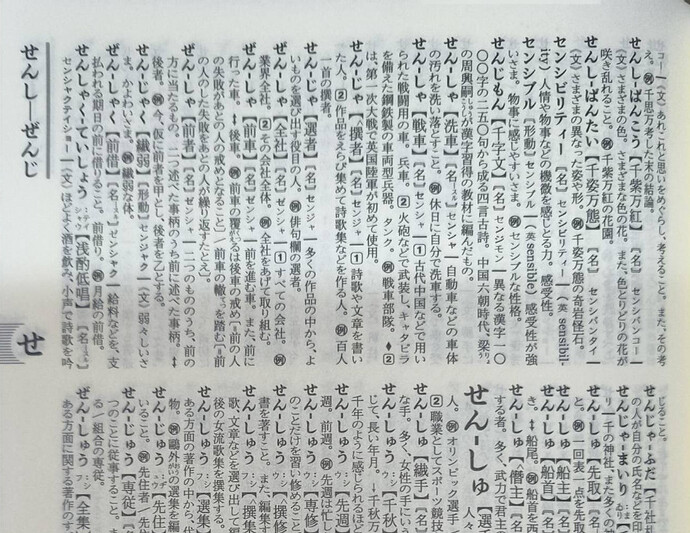 せんし―ぜんじ
せ
え。例千思万考した末の結論。
せんし-ばんこう【千紫万紅】〔名〕センシバンコー
〔文〕さまざまの色。さまざまな色の花。また、色とりどりの花が
咲き乱れること。例千紫万紅の花園。
せんし-ばんたい【千姿万態】〔名〕センシバンタイ
〔文〕さまざまの異なった姿や形。例千姿万態の奇岩怪石。
センシビリティー〔名〕センシビリティー〔英 sensibil-
ity〕人情や物事などの機微を感じとる力。感受性。
センシブル〔形動〕センシブル〔英 sensible〕感受性が強
いさま。物事に感じやすいさま。例センシブルな性格。
せんじもん【千字文】〔名〕センジモン 異なる漢字一〇
〇〇字の二五〇句から成る四言古詩。中国六朝時代、梁
の周興嗣が漢字習得の教材に編んだもの。
せん-しゃ【洗車】〔名・スル〕センシャ 自動車などの車体
の汚れを洗い落とすこと。例休日に自分で洗車する。
せん-しゃ【戦車】〔名〕センシャ ①古代中国などで用い
られた戦闘用の車。兵車。②火砲などで武装し、キャタピラ
を備えた鋼鉄製の車両型兵器。タンク。例戦車部隊。◆②
は、第一次大戦で英国陸軍が初めて使用。
せん-じゃ【撰者】〔名〕センジャ ①詩歌や文章を書い
た人。②作品をえらび集めて詩歌集などを作る人。例百人
一首の撰者。
せん-じゃ【選者】〔名〕センジャ 多くの作品の中から、よ
いものを選び出す役目の人。例俳句欄の選者。
ぜん-しゃ【全社】〔名〕ゼンシャ ①すべての会社。例
業界全社。②その会社全体。例全社をあげて取り組む。
ぜん-しゃ【前車】〔名〕ゼンシャ 前を進む車。また、前に
行った車。↓後車。例前車の覆るは後車の戒め〔=前の人
の失敗があとの人の戒めとなること〕/前車の轍を踏む〔=前
の人のした失敗をあとの人が繰り返すたとえ〕。
ぜん-しゃ【前者】〔名〕ゼンシャ 二つのもののうち、前の
方に当たるもの。二つ述べた事柄のうち前に述べた事柄。
後者。例今、仮に前者を甲とし、後者を乙とする。
せん-じゃく【繊弱】〔形動〕センジャク〔文〕弱々しいさ
ま。かよわいさま。例繊弱な体。
ぜん-しゃく【前借】〔名・スル〕ゼンシャク 給料などを、支
払われる期日の前に借りること。前借り。例月給の前借。
せんしゃく-ていしょう【浅酌低唱】〔名・スル〕
センシャクテイショー〔文〕ほどよく酒を飲み、小声で詩歌を吟
じること。
せんじゃ-ふだ【千社札
の人が自分の氏名などを印
せんじゃ-まいり
り】千の神社、また多くの神
せん-しゅ【先取】〔名
と。例一回表一点を先取
せん-しゅ【船主】〔名
せん-しゅ【船首】〔名
き。↕船尾。例船首を西
せん-しゅ【僭主】〔名
する者。多く、武力で君主の
せん-しゅ【選手
人々
人。例オリンピック選手/
②職業としてスポーツ競技
せん-しゅ【繊手】〔名
な手。多く、女性の手にいう
せん-しゅう【千秋】〔名
千年のように感じられるほど
じて、長い年月。→千秋万
せん-しゅう【先週】〔名
週。前週。例先週は忙し
せん-しゅう【専修】〔名
のことだけを習い修めること。
せん-しゅう【撰修】〔名
書を著すこと。また、編集す
せん-しゅう【撰集】〔名
歌、文章などを選び出して編
後の女流歌集を撰集する。
せん-しゅう【選集】〔名
ある方面の著作の中から、代
物。例鷗外の選集を編
せん-じゅう【先住】〔名
いること。例先住者/先住
せん-じゅう【専従】〔名
つのことに従事すること。ま
る/組合の専従。
ぜん-しゅう【全集】〔名
ある方面に関する著作のす